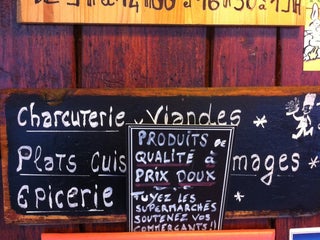 DE 9H à 14H00 à 16H30 à 19H
Charcuterie Viandes
Plats Cuis mages
Epicerie
PRODUITS DE
QUALITÉ à
PRIX DOUX
FUYEZ LES
SUPERMARCHÉS
SOUTENEZ VOS
COMMERÇANTS!